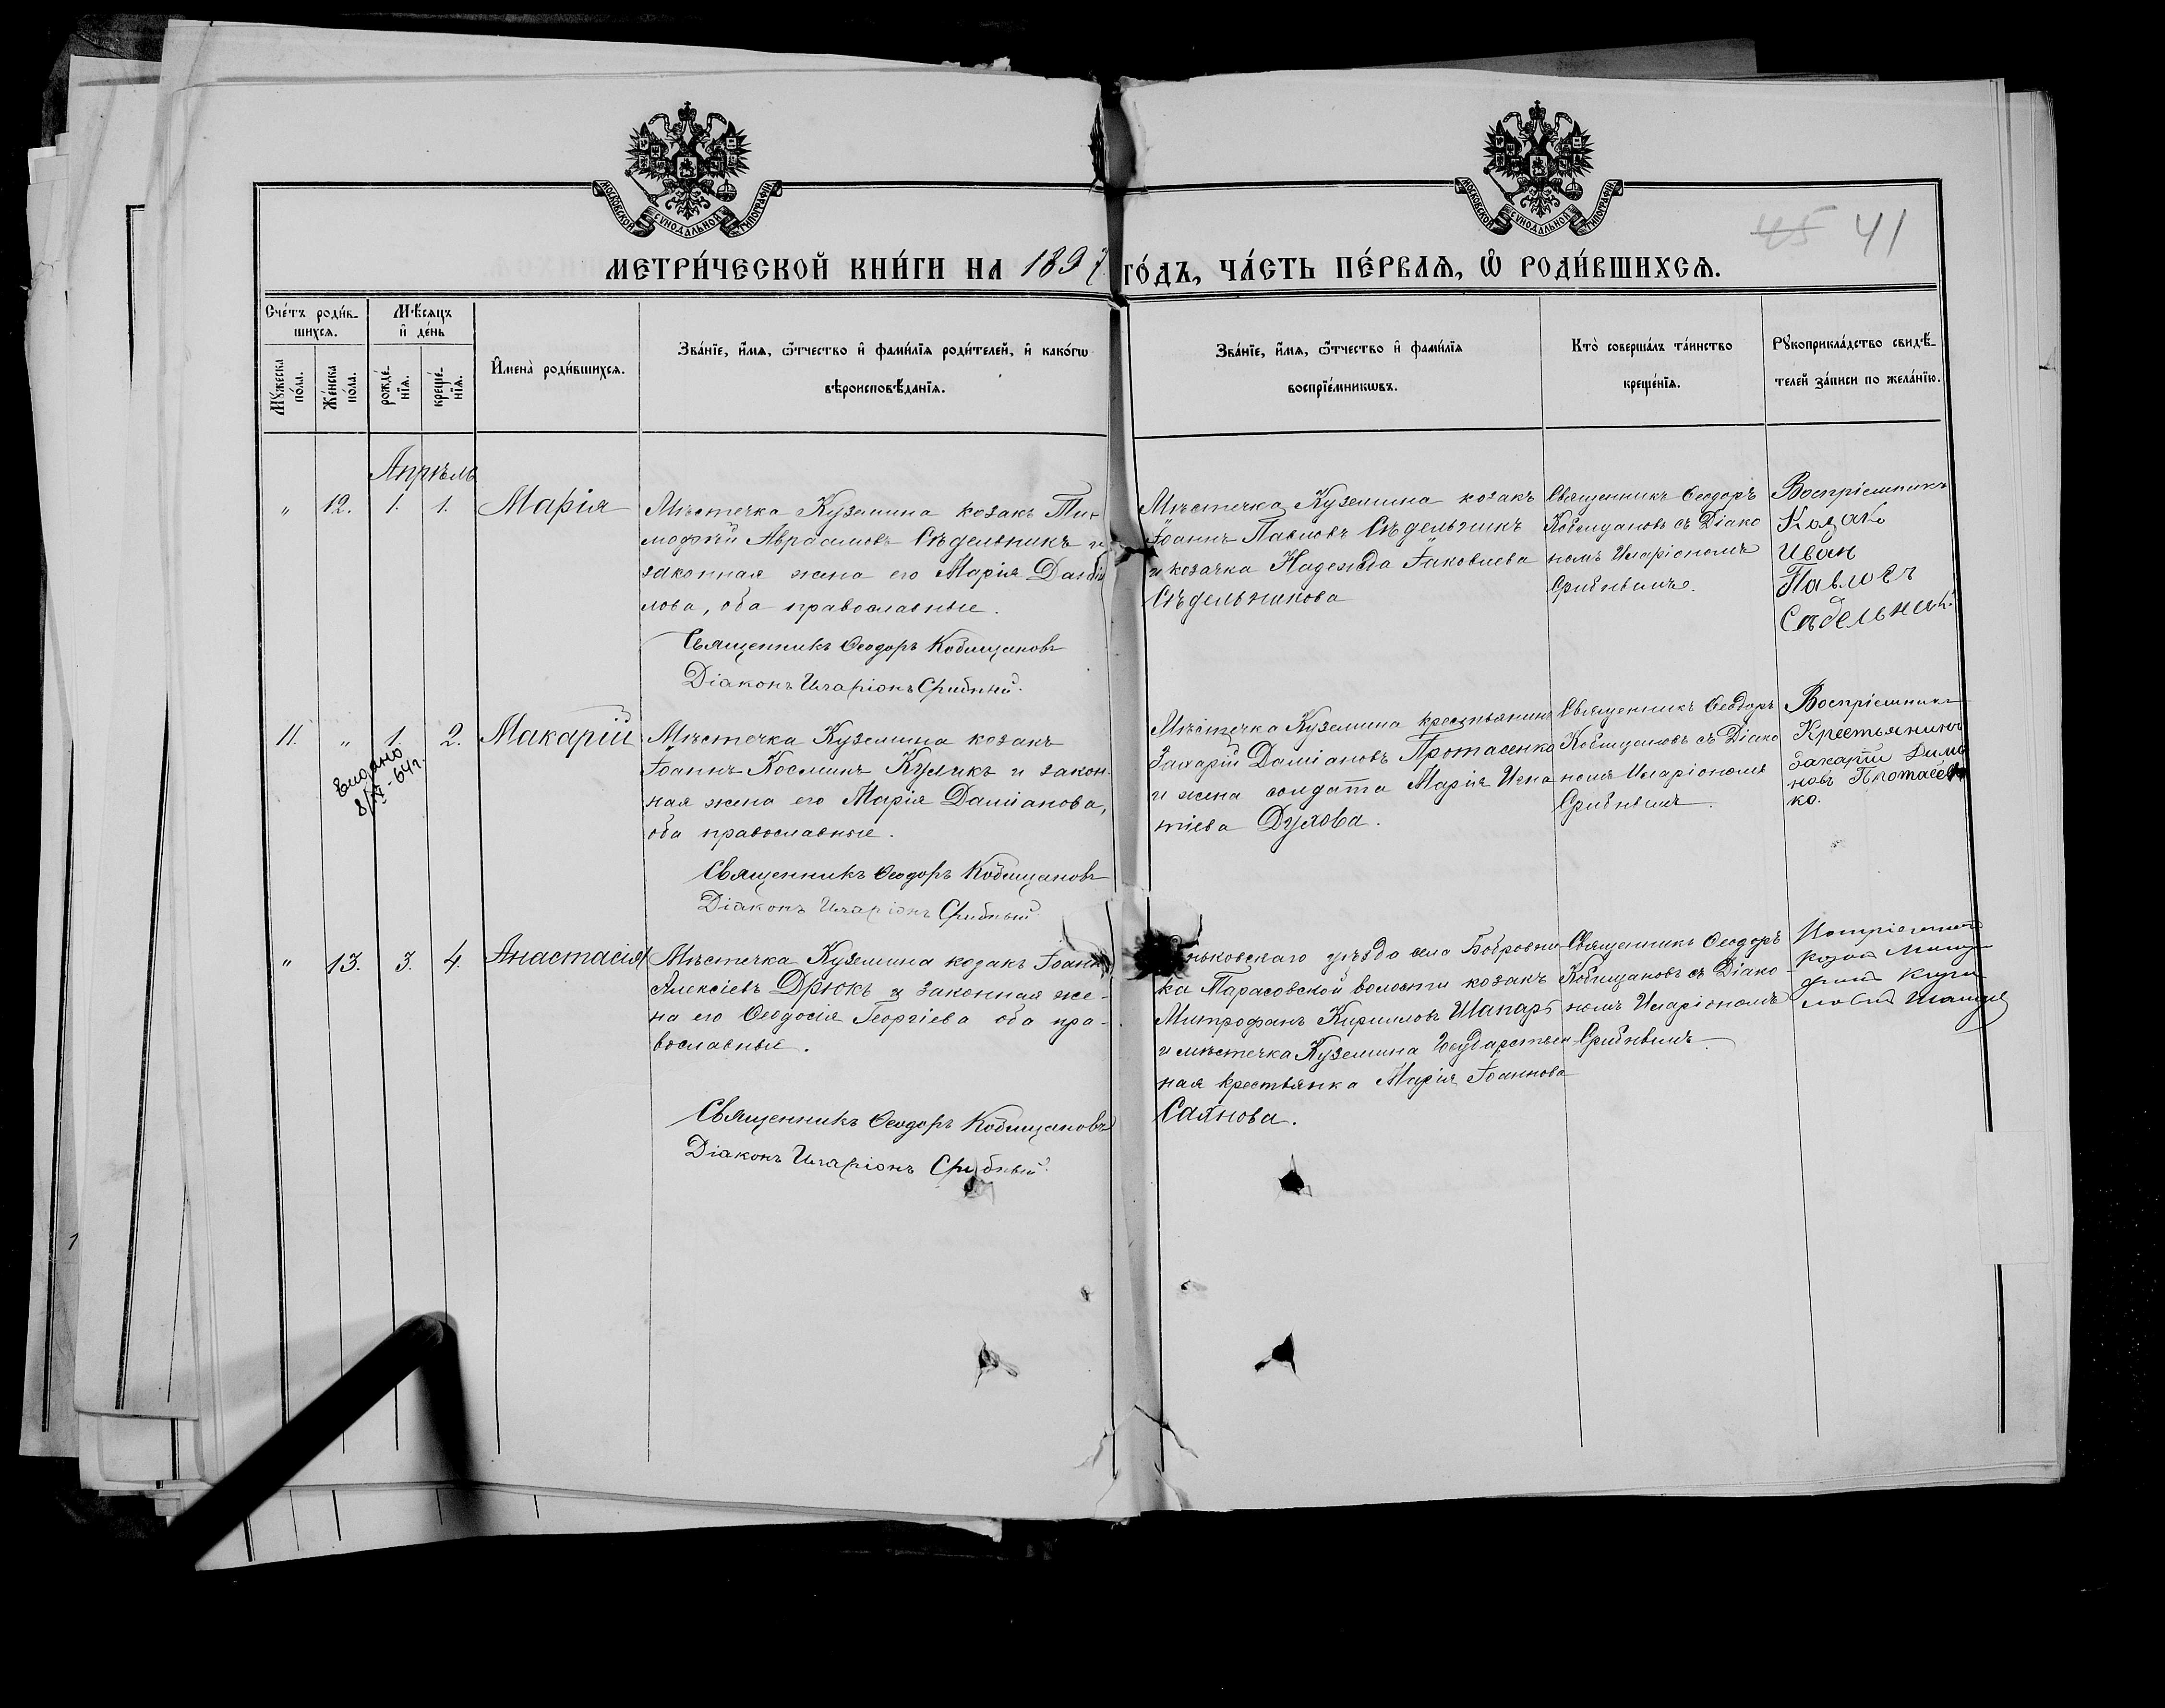 МОСКОВСКОЙ СѴНОДАЛЬНОЙ ТИПОГРАФІИ
МОСКОВСКОЙ СѴНОДАЛЬНОЙ ТИПОГРАФІИ
45 41
МЕТРИ́ЧЕСКОЙ КНИ́ГИ НА 1897 ГО́ДЪ, ЧА́СТЬ ПЕ́РВАѦ, Ѽ РОДИ́ВШИХСѦ.
Сче́тъ роди́в-
шихсѧ.
Мѣ́сѧцъ
и҆ де́нь
Мꙋ́жеска
по́ла.
Же́нска
по́ла.
рожде́-
нїѧ.
креще́-
нїѧ.
И҆мена̀ роди́вшихсѧ.
Зва́нїе, и҆́мѧ, ѻ҆́тчество и҆ фами́лїѧ роди́телей, и҆ како́гѡ
вѣроисповѣ́данїѧ.
Зва́нїе, и҆́мѧ, ѻ҆́тчество и҆ фами́лїѧ
воспрїе́мникѡвъ.
Кто̀ соверша́лъ та́инство
креще́нїѧ.
Рꙋкоприкла́дство свидѣ́-
телей за́писи по жела́нїю.
Апрѣль
" 12. 1. 1. Марія
Мѣстечка Куземина козакъ Ти-
мофей Авраамовъ Сѣдельникъ и
законная жена его Марія Даніи
лова, оба православные.
Священникъ Ѳеодоръ Кобищановъ
Діаконъ Иларіонъ Срибный.
Мѣстечка Куземина козакъ
Іоаннъ Павловъ Сѣдельникъ
и козачка Надежда Іаковлева
Сѣдельникова
Священникъ Ѳеодоръ
Кобищановъ съ Діако
номъ Иларіономъ
Срибнымъ.
Воспріемникъ
Козакъ
Иван
Павловъ
Седельник
11. " 1. 2. Макарій
Видано
8/IV-64г.
Мѣстечка Куземина козакъ
Іоаннъ Космин Куликъ и закон-
ная жена его Марія Даміанова,
оба православные.
Священникъ Ѳеодоръ Кобищановъ
Діаконъ Иларіонъ Срибный.
Мѣстечка Куземина крестьянинъ
Захарій Даміановъ Протасенко
и жена солдата Марія Игна
тіева Духова.
Священникъ Ѳеодоръ
Кобищановъ съ Діако
номъ Иларіономъ
Срибнымъ.
Воспріемникъ
Крестьянинъ
Захарій Дамя
новъ Протасен
ко.
" 13. 3. 4. Анастасія
Мѣстечка Куземина козакъ Іоаннъ
Алексіевъ Дрюкъ и законная же-
на его Ѳеодосія Георгіева оба пра-
вославные.
Священникъ Ѳеодоръ Кобищановъ
Діаконъ Иларіонъ Срибный.
ньковскаго уѣзда села Бобровни
ка Тарасовской волости козакъ
Митрофанъ Кирилловъ Шапаръ
и мѣстечка Куземина Государствен
ная крестьянка Марія Іоаннова
Саянова.
Священникъ Ѳеодоръ
Кобищановъ съ Діако
номъ Иларіономъ
Срибнымъ.
козак